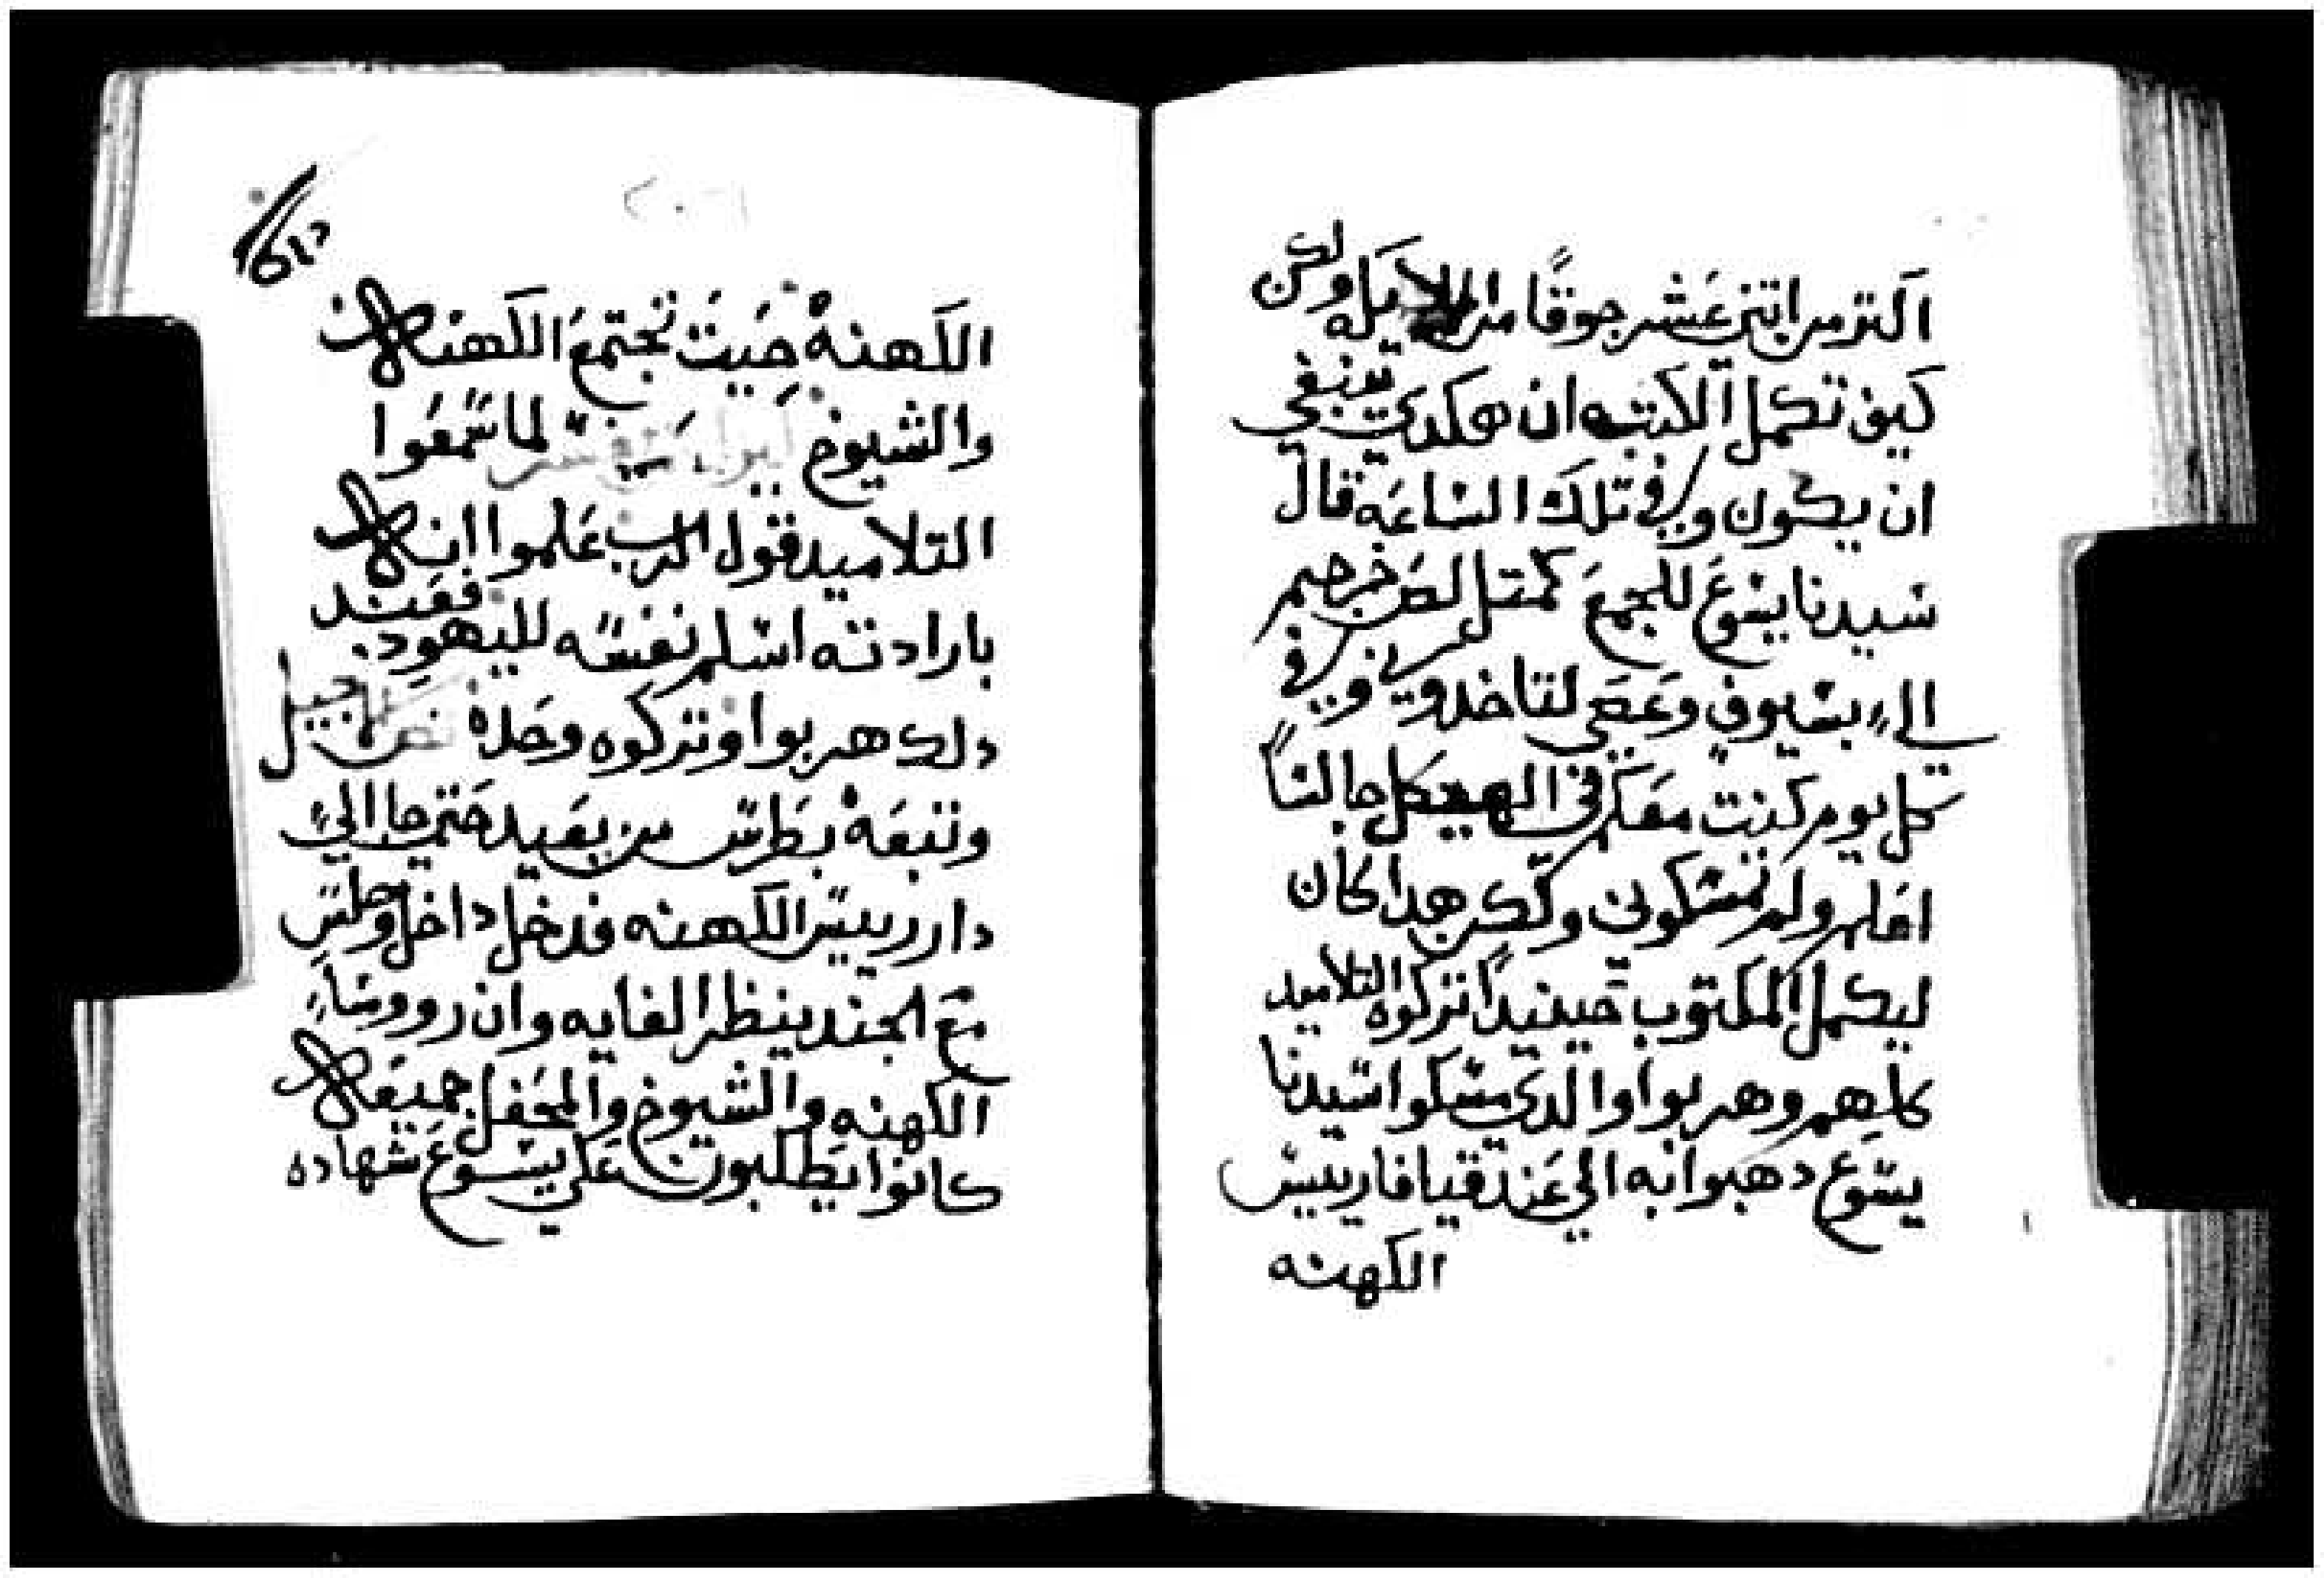 اكتر من اتني عشر جوقًا من الملايكه ولكن
كيف تكمل الكتب ان هكدي ينبغي
ان يكون وفي تلك الساعه قال
سيدنا يسوع للجمع كمتل لص خرجتم
الي بسيوف وعصي لتاخدوني وفي
كل يوم كنت معكم في الهيكل جالسًا
اعلم ولم تمسكوني ولكن هدا كان
ليكمل المكتوب حينيدًا تركوه التلاميد
كلهم وهربوا والدي مسكوا سيدنا
يسوع دهبوا به الي عند قيافا رييس
الكهنه
الكهنه حيت تجتمع الكهنه
والشيوخ لما سمعوا
التلاميد قول الرب علموا انه
بارادته اسلم نفسه لليهود. فعند
دلك هربوا وتركوه وحده
وتبعه بطرس من بعيد حتي جا الي
دار رييس الكهنه فدخل داخل وجلس
مع الجند ينظر الغايه وان رووساء
الكهنه والشيوخ والمحفل جميعه
كانوا يطلبون علي يسوع شهاده